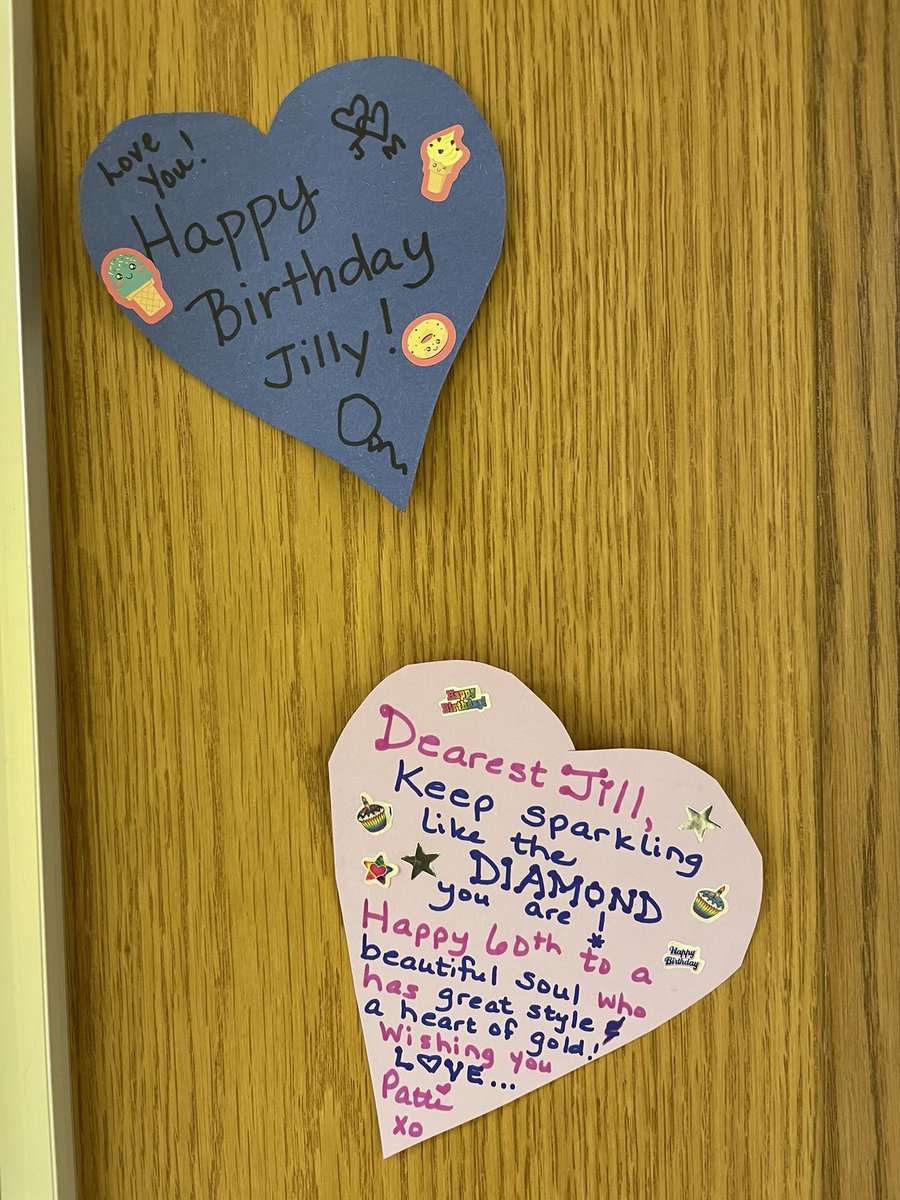 Love
You!
J M
Happy
Birthday
Jilly!
Happy
Birthday!
Dearest Jill,
Keep sparkling
like the
DIAMOND
you are!
Happy 60th to a
beautiful soul who
has great style &
a heart of gold!
Wishing you
LOVE...
Patti
xo
Happy
Birthday